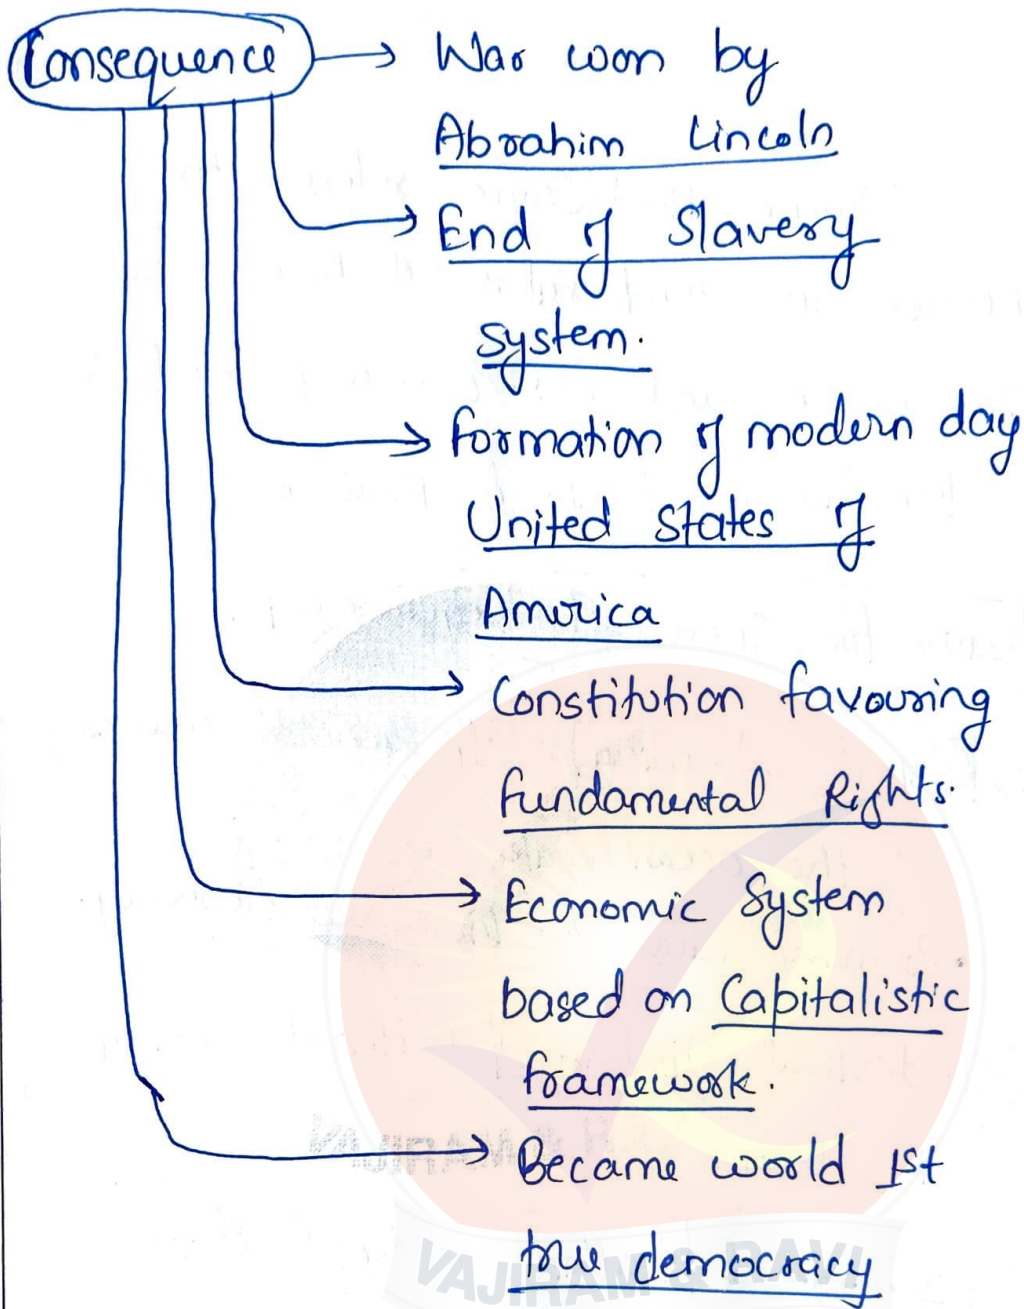 Consequence
War won by
Abrahim Lincoln
End of Slavery
system.
formation of modern day
United States of
America
Constitution favouring
fundamental Rights.
Economic System
based on Capitalistic
framework.
Became world 1st
true democracy
VAJIRAM & RAVI